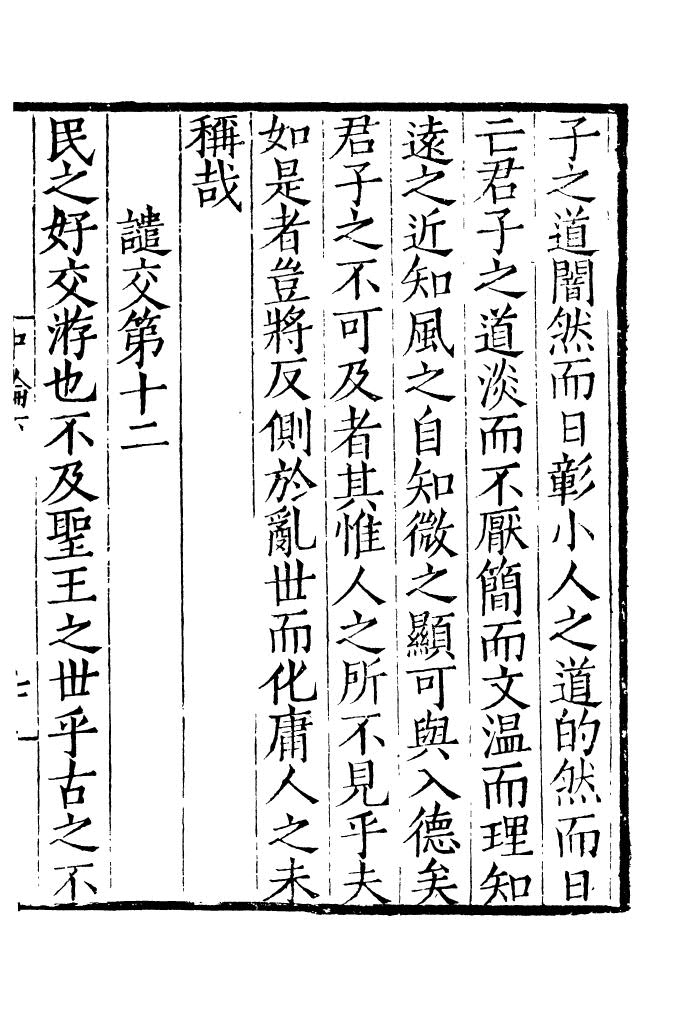 子之道闇然而日彰小人之道的然而日
亡君子之道淡而不厭簡而文温而理知
遠之近知風之自知微之顯可與入德矣
君子之不可及者其惟人之所不見乎夫
如是者豈將反側於亂世而化庸人之未
稱哉
譴交第十二
民之好交游也不及聖王之世乎古之不